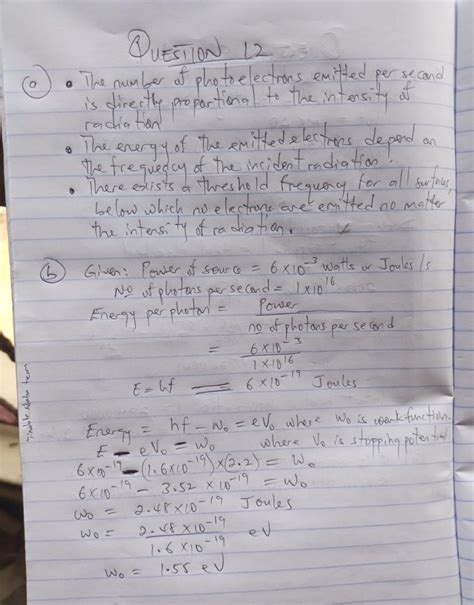 QUESTION 12
(a) • The number of photoelectrons emitted per second
is directly proportional to the intensity of
radiation
• The energy of the emitted electrons depend on
the frequency of the incident radiation.
• There exists a threshold frequency for all surfaces,
below which no electrons are emitted no matter
the intensity of radiation.
(b) Given: Power of source = 6×10⁻³ watts or Joules/s
No of photons per second = 1×10¹⁶
Energy per photon = Power / no of photons per second
= 6×10⁻³ / 1×10¹⁶
E = hf = 6×10⁻¹⁹ Joules
Energy = hf - w₀ = eV₀ where w₀ is work function.
E - eV₀ = w₀ where V₀ is stopping potential
6×10⁻¹⁹ - (1.6×10⁻¹⁹)×(2.2) = w₀
6×10⁻¹⁹ - 3.52 × 10⁻¹⁹ = w₀
w₀ = 2.48×10⁻¹⁹ Joules
w₀ = 2.48×10⁻¹⁹ / 1.6×10⁻¹⁹ eV
w₀ = 1.55 eV